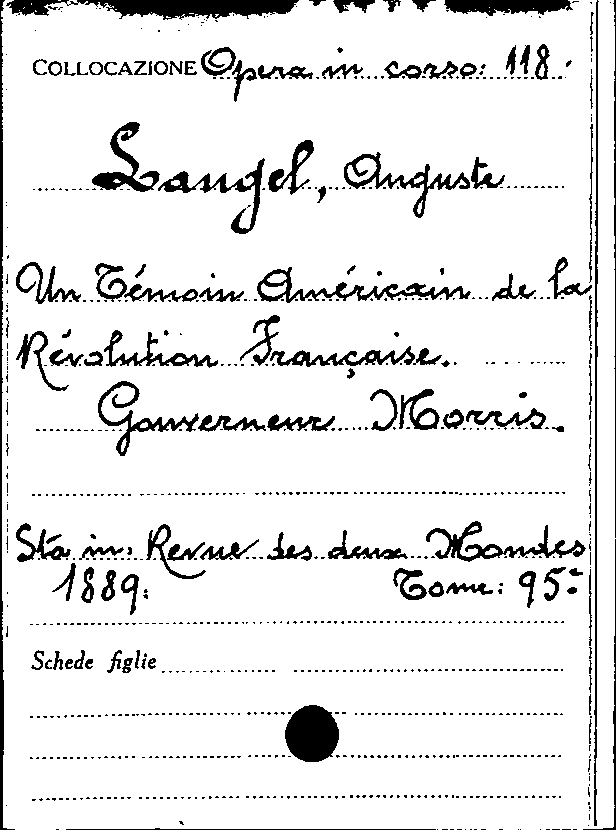 COLLOCAZIONE Opera in corso: 118.
Laugel, Auguste
Un Témoin Américain de la
Révolution Française.
Gouverneur Morris.
Sta in: Revue des deux Mondes
1889. Tome: 95º
Schede figlie